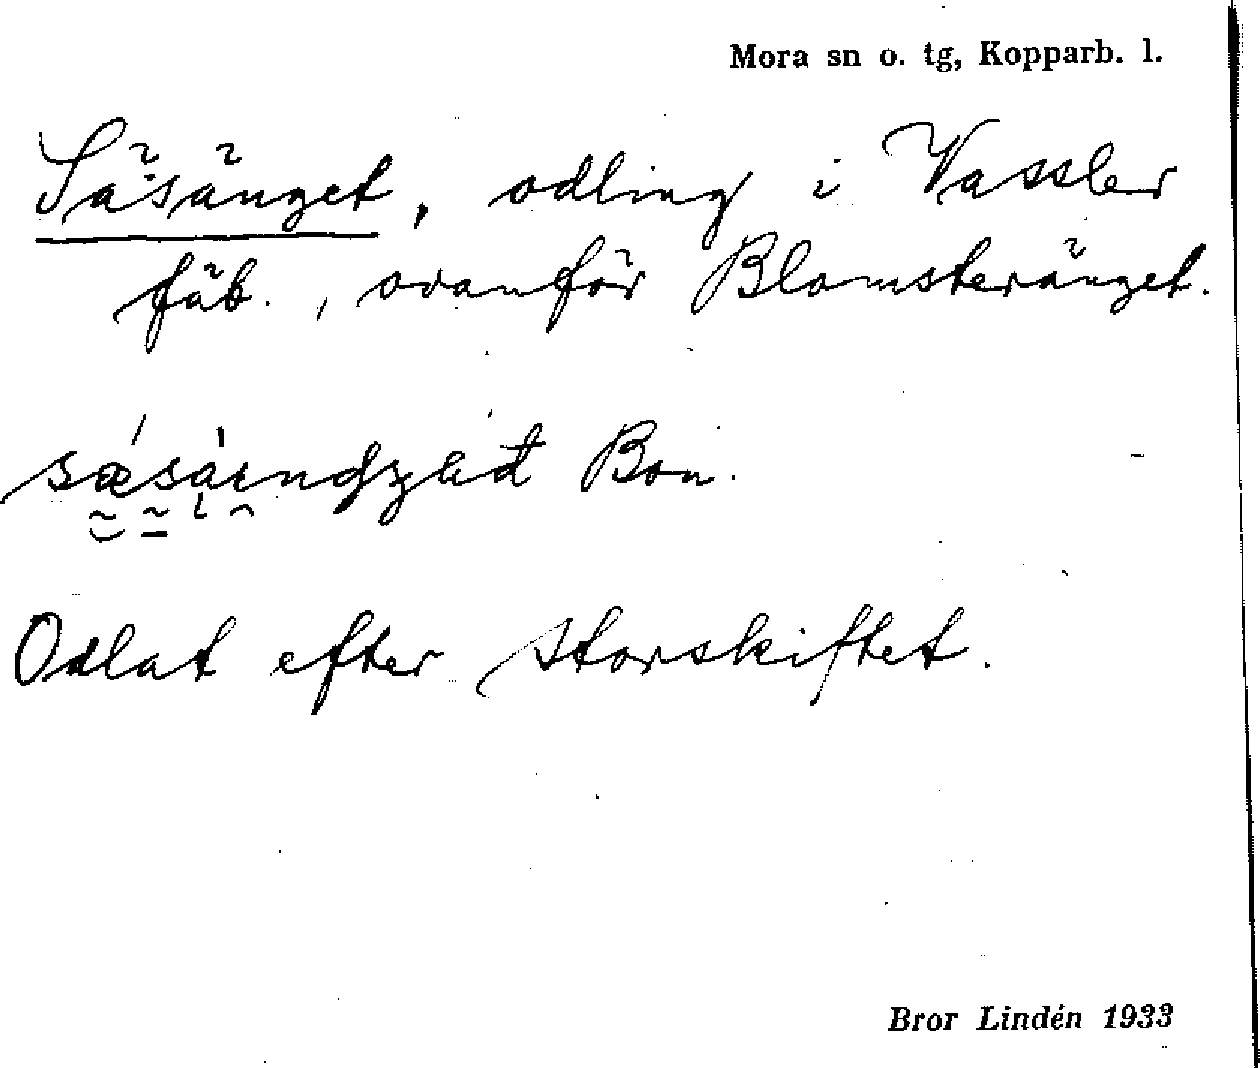 Mora sn o. tg, Kopparb. l.
Säsänget, odling i Vassler
fäb., ovanför Blomsteränget.
Bon.
Odlat efter storskiftet.
Bror Lindén 1933